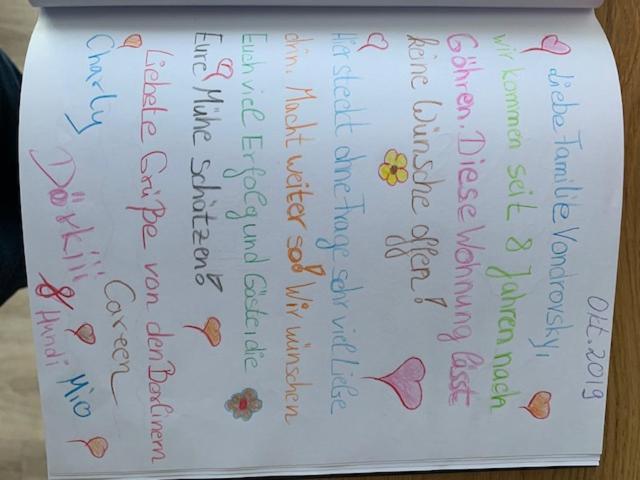 Okt. 2019
Liebe Familie Vondrovsky,
wir kommen seit 8 Jahren nach
Göhren. Diese Wohnung lässt
keine Wünsche offen!
Hier steckt ohne Frage sehr viel Liebe
drin. Macht weiter so! Wir wünschen
Euch viel Erfolg und Gäste, die
Eure Mühe schätzen!
Liebste Grüße von den Berlinern
Charly
Careen
Mio
Dörkiii
& Hundi